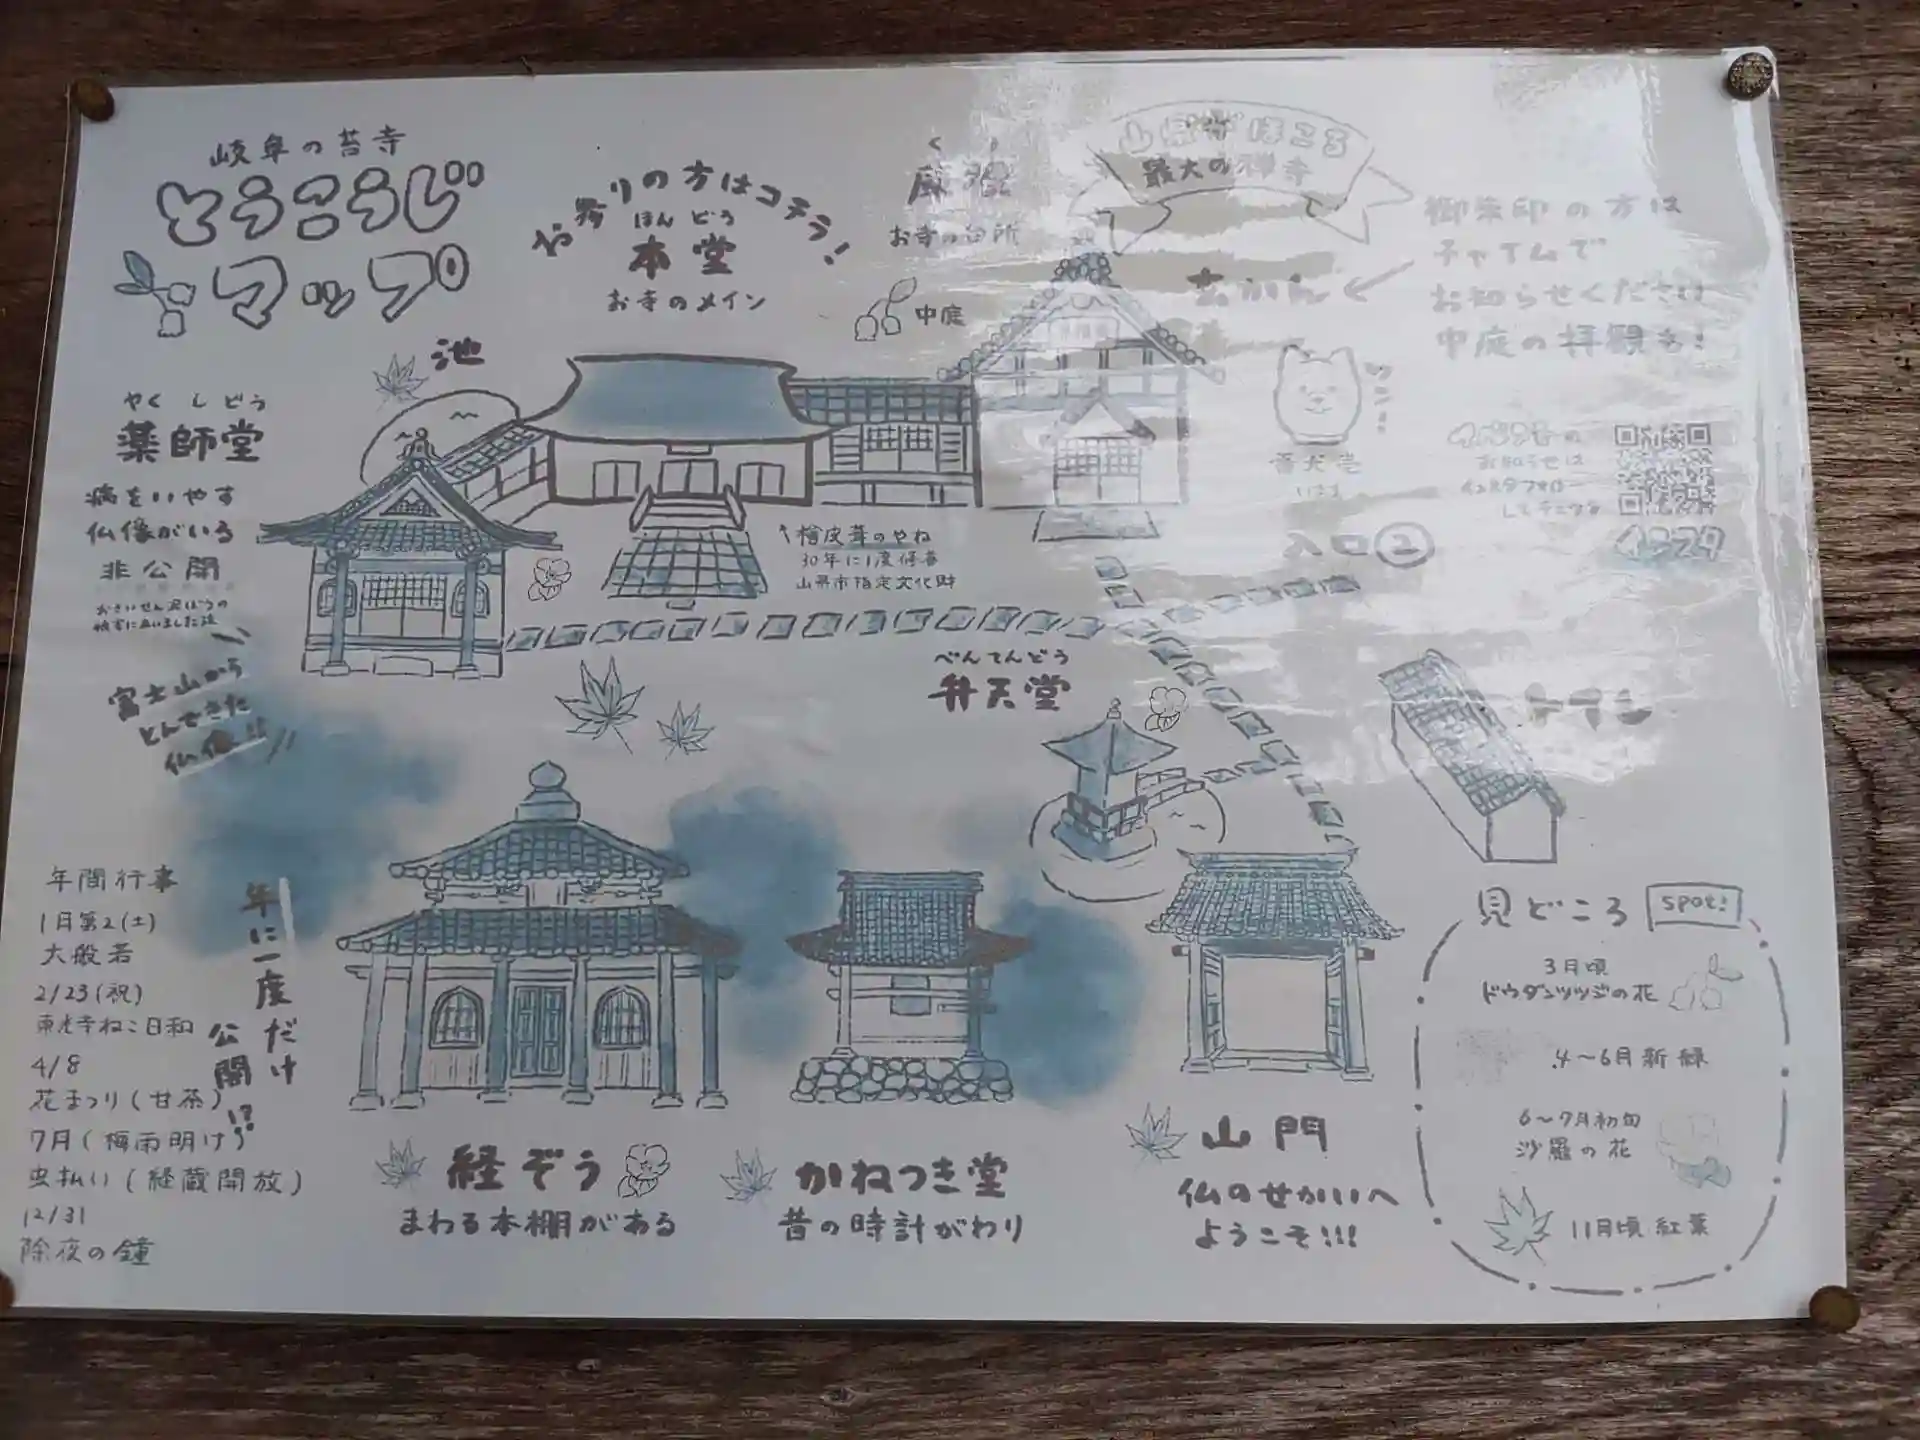 岐阜の苔寺
とうこうじ
マップ
お参りの方はコチラ!
ほんどう
本堂
お寺のメイン
お寺の台所
中庭
山県がほこる
最大の禅寺
げんかん
御朱印の方は
チャイムで
お知らせください
中庭の拝観も!
池
やくしどう
薬師堂
病をいやす
仏像がいる
非公開
おさいせん泥ぼうの
被害に
富士山から
とんできた
仏像!!
檜皮葺のやね
30年に1度修善
山県市指定文化財
ワン!
番犬
います
お知らせは
インスタフォロー
インスタ
入口②
べんてんどう
弁天堂
トイレ
年間行事
1月第2(土)
大般若
2/23(祝)
東光寺ねこ日和
4/8
花まつり(甘茶)
7月(梅雨明け)
虫払い(経蔵開放)
12/31
除夜の鐘
年に一度だけ
公開!?
経ぞう
まわる本棚がある
かねつき堂
昔の時計がわり
山門
仏のせかいへ
ようこそ!!!
見どころ
spot!
3月頃
ドウダンツツジの花
4〜6月新緑
6〜7月初旬
沙羅の花
11月頃 紅葉